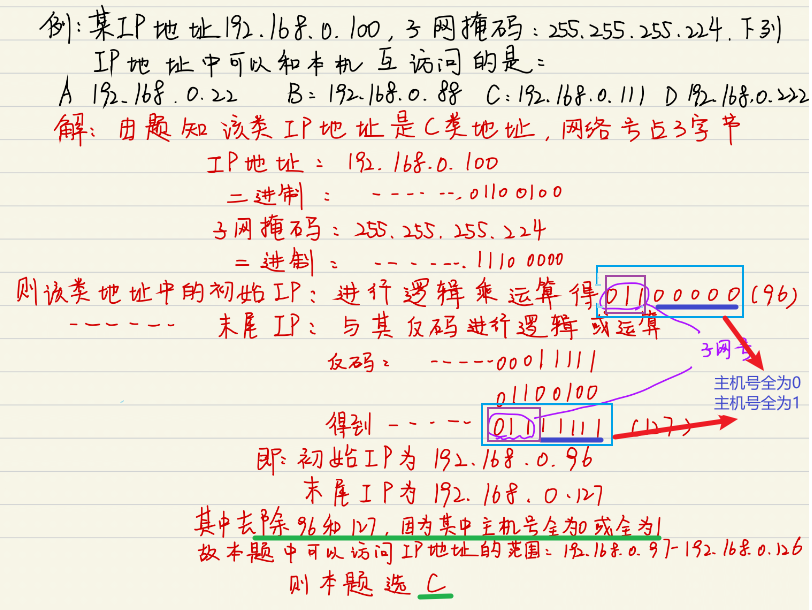 例:某IP地址192.168.0.100,子网掩码:255.255.255.224.下列
IP地址中可以和本机互访问的是:
A 192.168.0.22 B:192.168.0.88 C:192.168.0.111 D 192.168.0.222
解:由题知该类IP地址是C类地址,网络号占3字节
IP地址: 192.168.0.100
二进制: -------.01100100
子网掩码:255.255.255.224
二进制: ------.11100000
则该类地址中的初始IP:进行逻辑乘运算得01100000(96)
------ 末尾IP:与其反码进行逻辑或运算
子网号
反码: ------00011111
01100100
主机号全为0
主机号全为1
得到------01111111 (127)
即:初始IP为192.168.0.96
末尾IP为192.168.0.127
其中去除96和127,因为其中主机号全为0或全为1
故本题中可以访问IP地址的范围:192.168.0.97-192.168.0.126
则本题选C